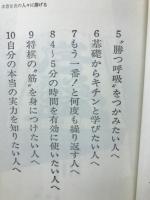 本書を次の人々に捧げる
5 〝勝つ呼吸〟をつかみたい人へ
6 基礎からキチンと学びたい人へ
7 もう一番！と何度も繰り返す人へ
8 4～5分の時間を有効に使いたい人へ
9 将棋の〝筋〟を身につけたい人へ
10 自分の本当の実力を知りたい人へ